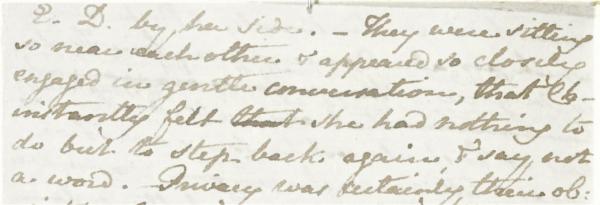 E. D. by her side. — They were sitting
so near each other & appeared so closely
engaged in gentle conversation, that Ch—
instantly felt that she had nothing to
do but to step back again, & say not
a word. — Privacy was certainly their ob: